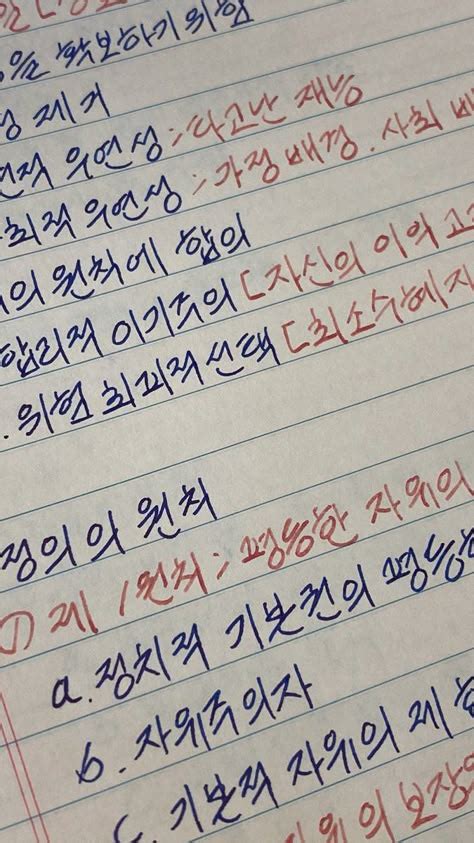 을 확보하기 위함
제거
연적 우연성 : 타고난 재능
회적 우연성 : 가정 배경, 사회 배
의 원칙에 합의
합리적 이기주의 [자신의 이익 고
위험 회피적 선택 [최소 수혜자
정의의 원칙
① 제 1원칙 : 평등한 자유의
a. 정치적 기본권의 평등한
b. 자유주의자
c. 기본적 자유의 제한
자유의 보장